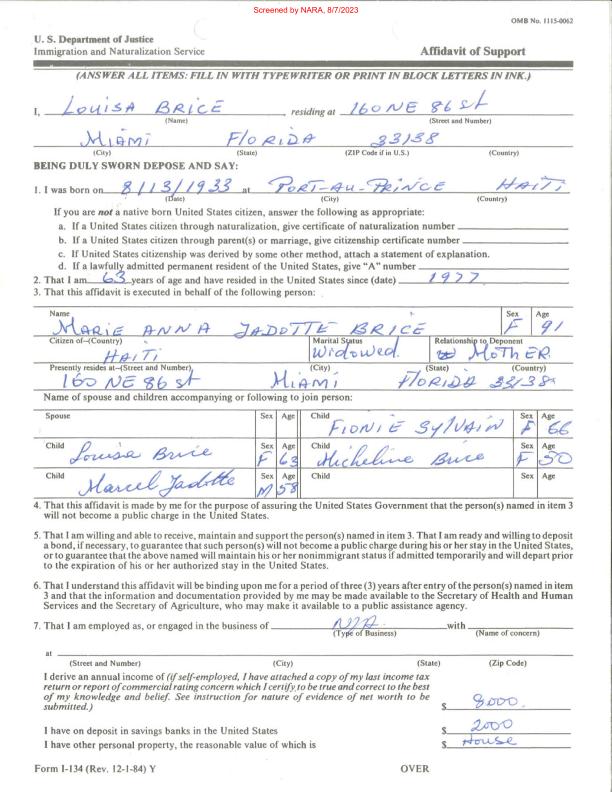 Screened by NARA, 8/7/2023
OMB No. 1115-0062
U. S. Department of Justice
Immigration and Naturalization Service Affidavit of Support
(ANSWER ALL ITEMS: FILL IN WITH TYPEWRITER OR PRINT IN BLOCK LETTERS IN INK.)
I, LOUISA BRICE residing at 160 NE 86 St
(Name) (Street and Number)
MIAMI FLORIDA 33138
(City) (State) (ZIP Code if in U.S.) (Country)
BEING DULY SWORN DEPOSE AND SAY:
1. I was born on 8/13/1933 at PORT-AU-PRINCE HAITI
(Date) (City) (Country)
If you are not a native born United States citizen, answer the following as appropriate:
a. If a United States citizen through naturalization, give certificate of naturalization number
b. If a United States citizen through parent(s) or marriage, give citizenship certificate number
c. If United States citizenship was derived by some other method, attach a statement of explanation.
d. If a lawfully admitted permanent resident of the United States, give "A" number
2. That I am 63 years of age and have resided in the United States since (date) 1977
3. That this affidavit is executed in behalf of the following person:
Name Sex Age
MARIE ANNA JADOTTE BRICE F 91
Citizen of-(Country) Marital Status Relationship to Deponent
HAITI Widowed MOTHER
Presently resides at-(Street and Number) (City) (State) (Country)
160 NE 86 St MIAMI FLORIDA 33138
Name of spouse and children accompanying or following to join person:
Spouse Sex Age Child Sex Age
FIONIE SYLVAIN F 66
Child Sex Age Child Sex Age
Louisa Brice F 63 Micheline Brice F 50
Child Sex Age Child Sex Age
Marcel Jadotte M 58
4. That this affidavit is made by me for the purpose of assuring the United States Government that the person(s) named in item 3
will not become a public charge in the United States.
5. That I am willing and able to receive, maintain and support the person(s) named in item 3. That I am ready and willing to deposit
a bond, if necessary, to guarantee that such person(s) will not become a public charge during his or her stay in the United States,
or to guarantee that the above named will maintain his or her nonimmigrant status if admitted temporarily and will depart prior
to the expiration of his or her authorized stay in the United States.
6. That I understand this affidavit will be binding upon me for a period of three (3) years after entry of the person(s) named in item
3 and that the information and documentation provided by me may be made available to the Secretary of Health and Human
Services and the Secretary of Agriculture, who may make it available to a public assistance agency.
7. That I am employed as, or engaged in the business of N/A with
(Type of Business) (Name of concern)
at
(Street and Number) (City) (State) (Zip Code)
I derive an annual income of (if self-employed, I have attached a copy of my last income tax
return or report of commercial rating concern which I certify to be true and correct to the best
of my knowledge and belief. See instruction for nature of evidence of net worth to be
submitted.) $ 8000
I have on deposit in savings banks in the United States $ 2000
I have other personal property, the reasonable value of which is $ House
Form I-134 (Rev. 12-1-84) Y OVER